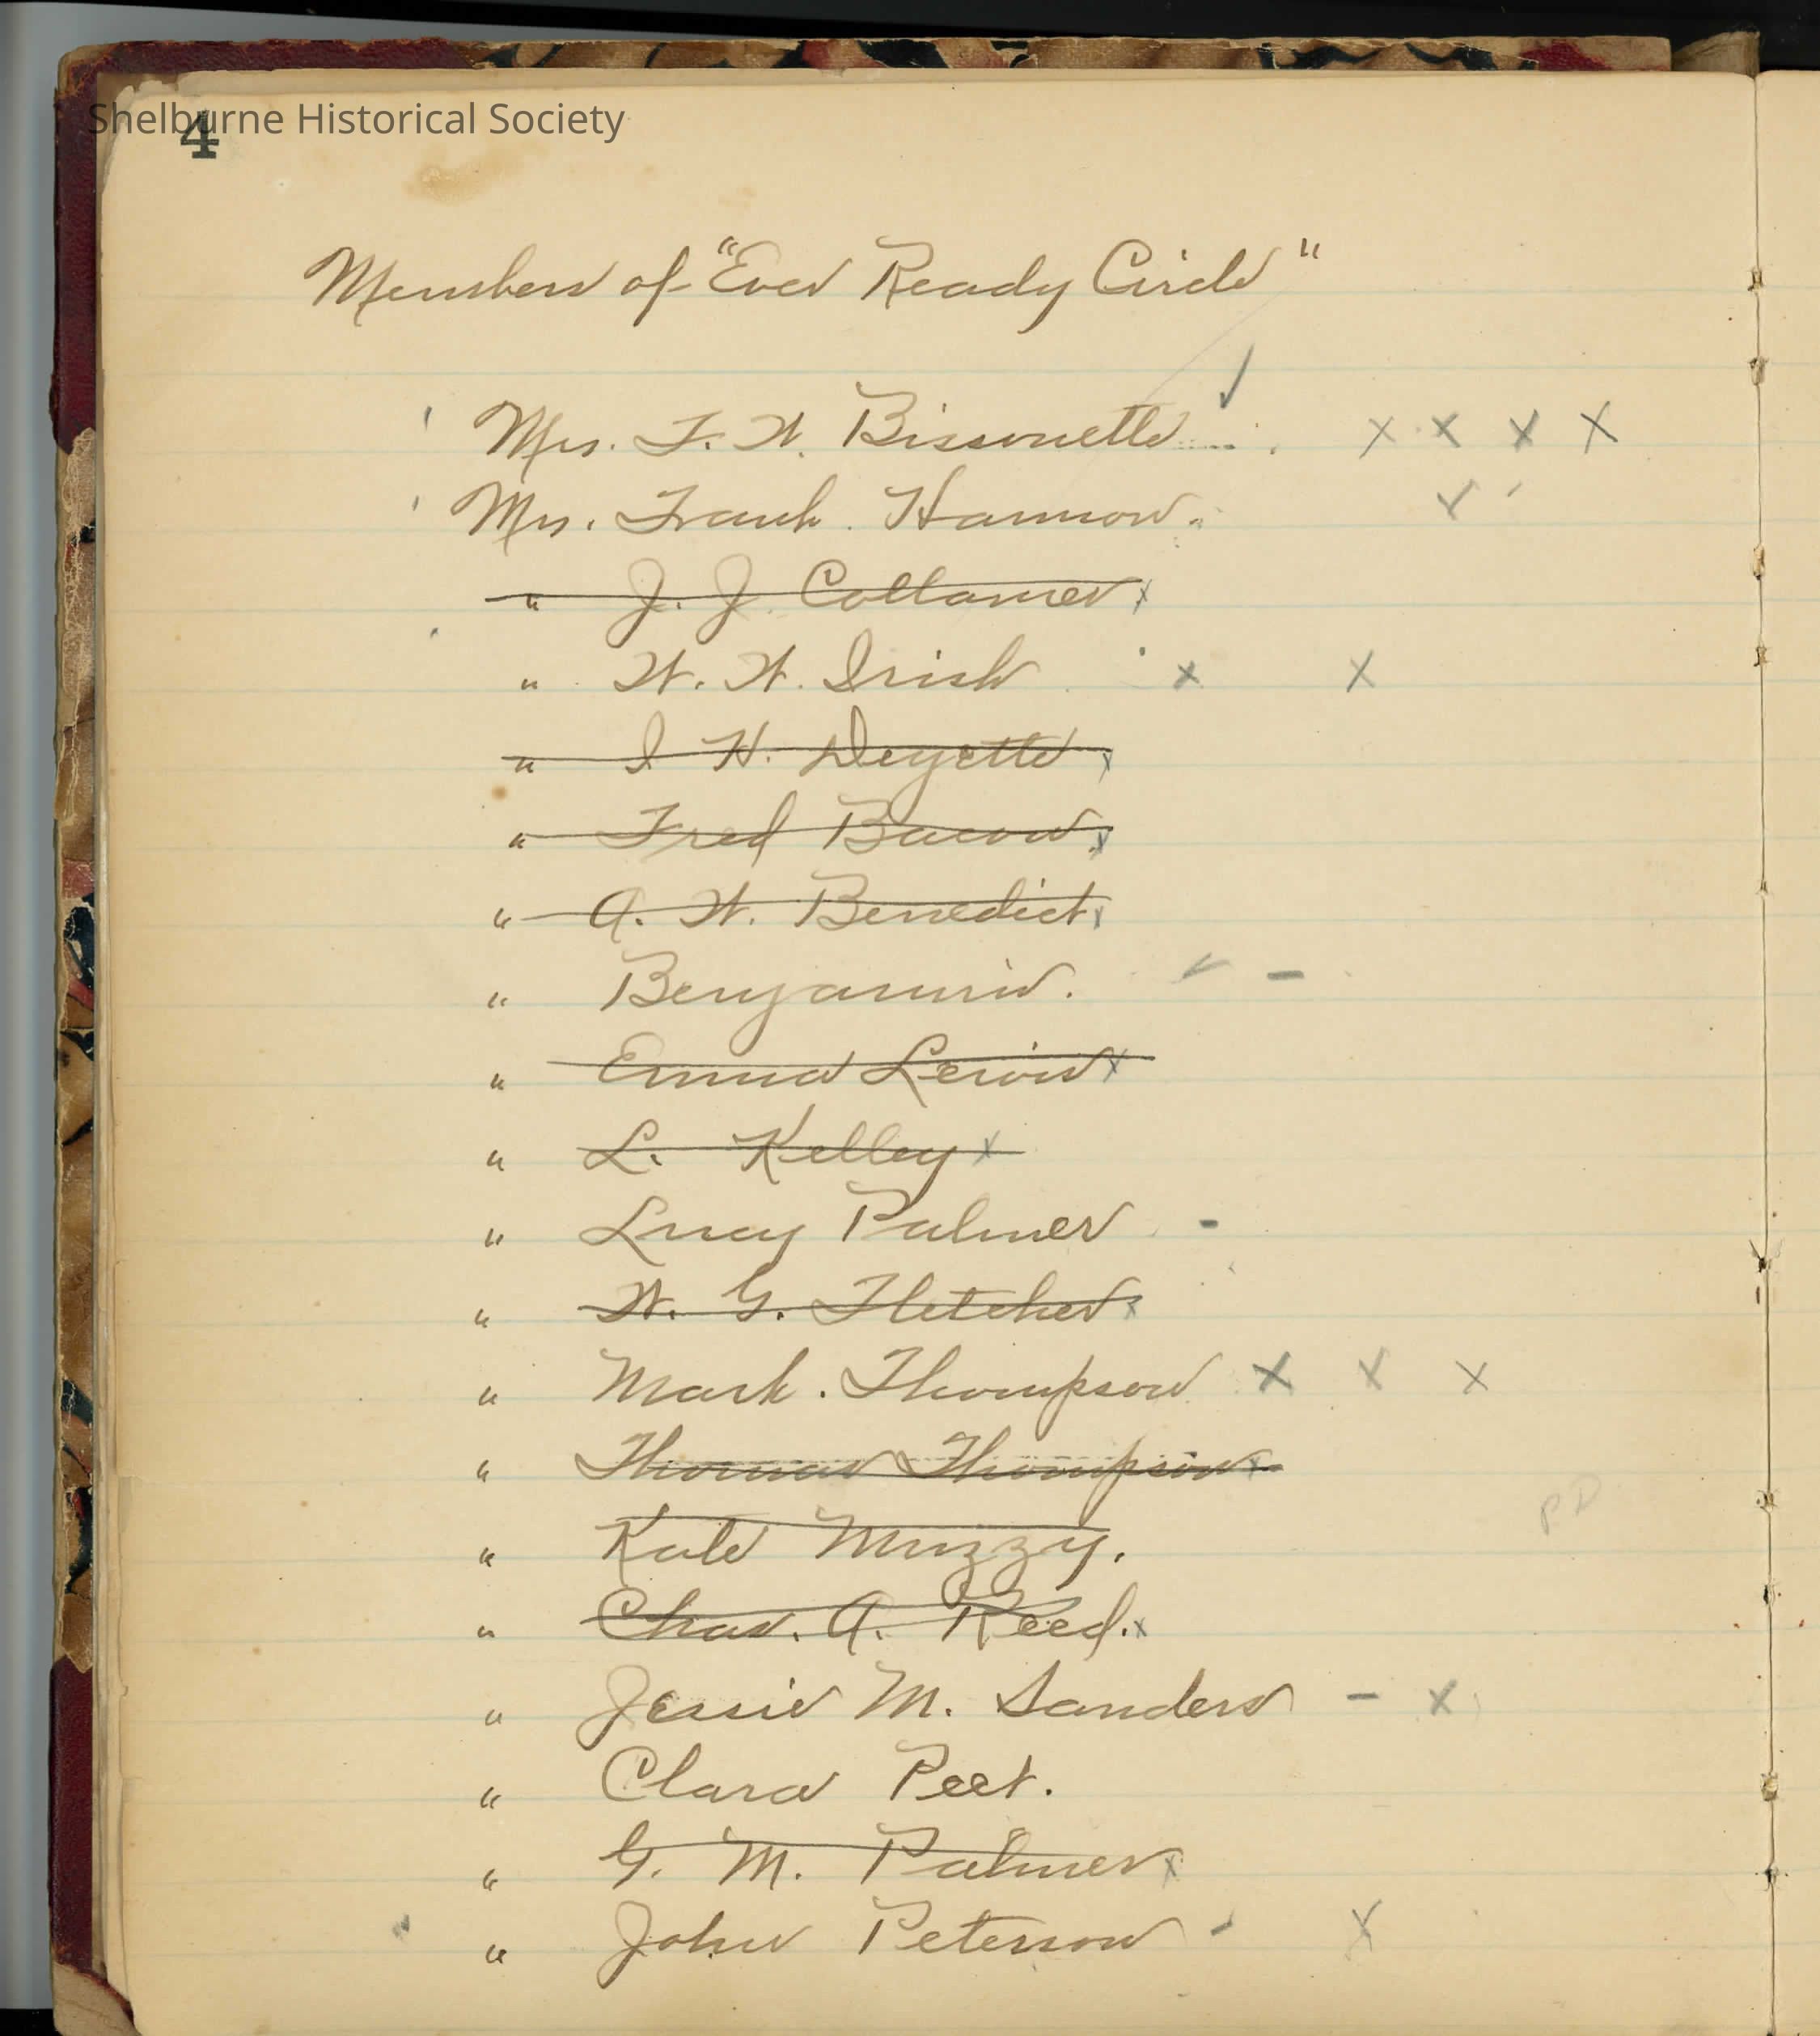 Shelburne Historical Society
4
Members of "Ever Ready Circle"
Mrs. F. W. Bissonette ✓ x x x x
Mrs. Frank Harmon. ✓
" J. J. Collamer x
" W. W. Irish x x
" I H. Deyette x
" Fred Bacon. x
" A. W. Benedict x
" Benjamin. ✓ -
" Emma Lewis x
" L. Kelley x
" Lucy Palmer -
" W. G. Fletcher x
" Mark. Thompson x x x
" Thomas Thompson x
PD
" Kate Muzzy.
" Chas. A. Reed. x
" Jessie M. Sanders - x
" Clara Peet.
" G. M. Palmer x
" John Peterson - x